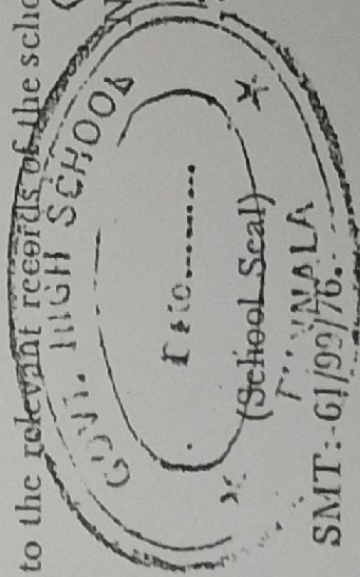 to the relevant records of the scho
GOVT. HIGH SCHOOL
(School Seal)
SMT:-61/99/76.